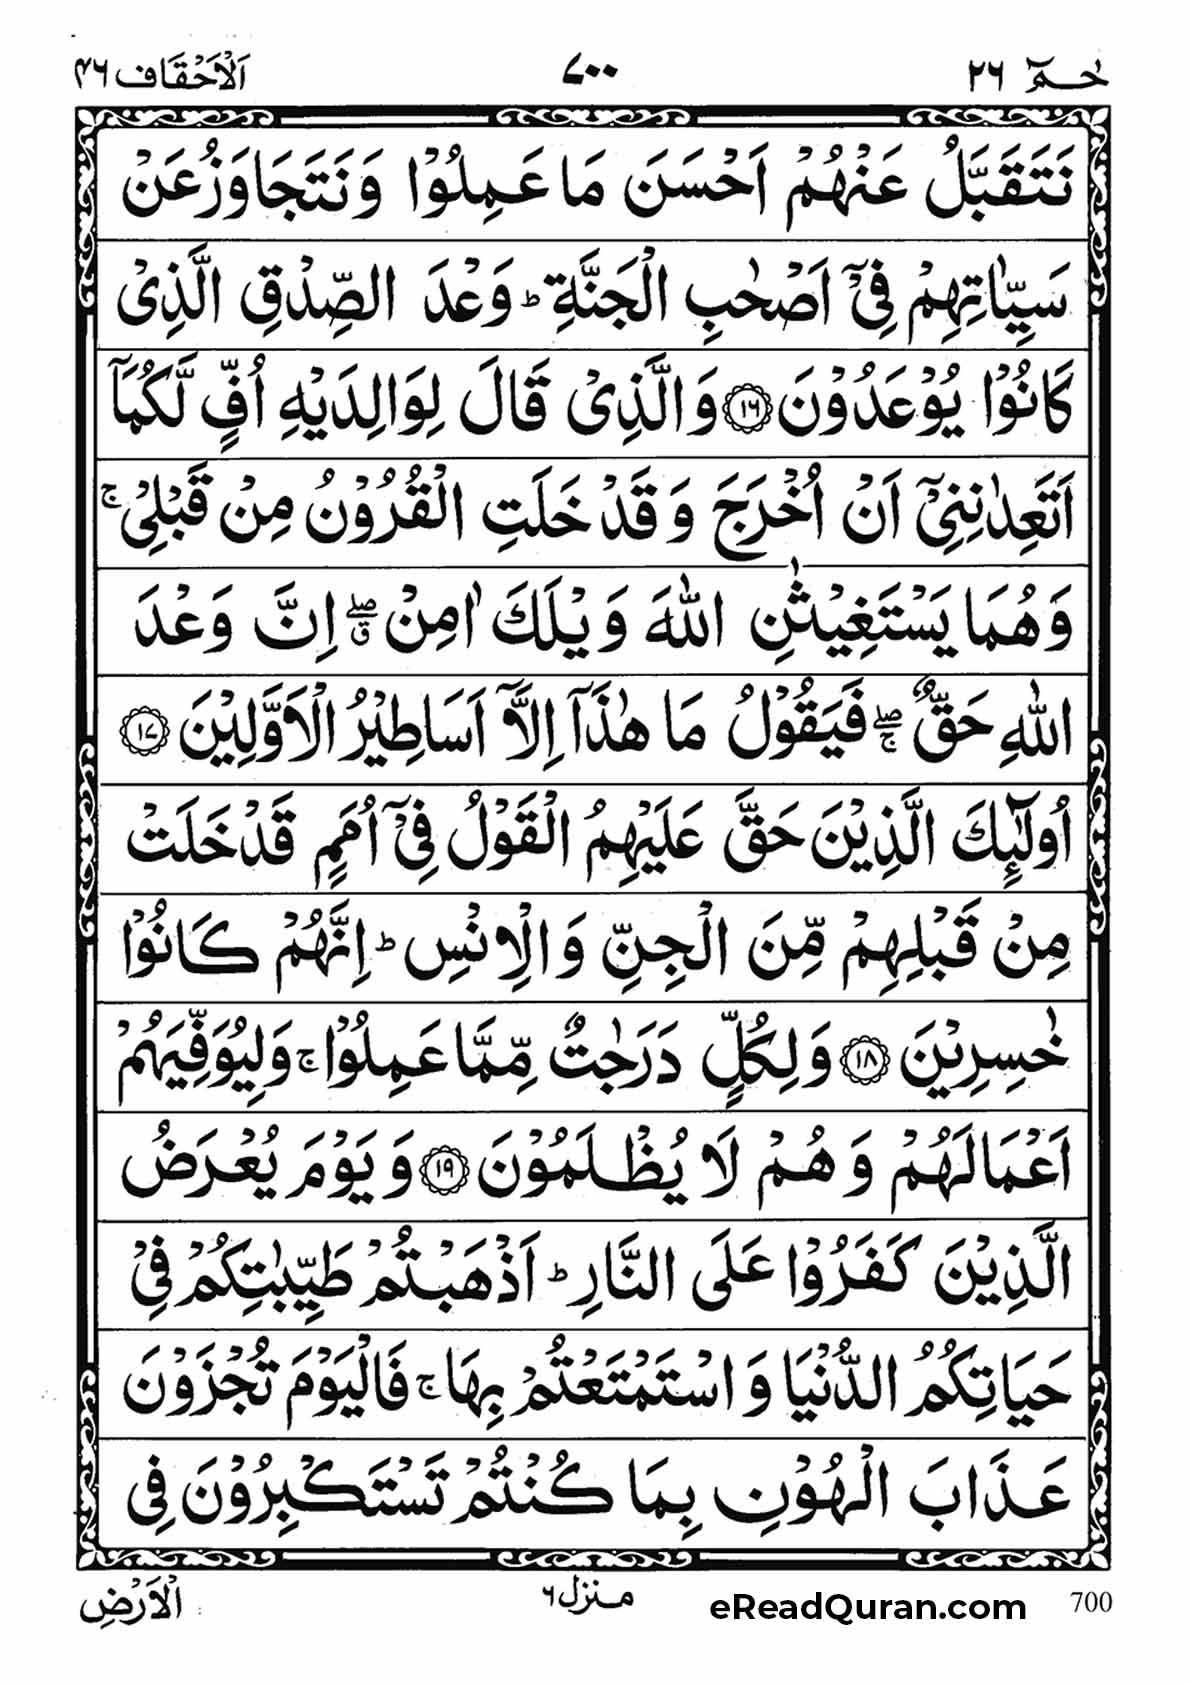 حٰمٓ ٢٦ ٧٠٠ اَلْاَحْقَاف ۴۶
نَتَقَبَّلُ عَنْهُمْ اَحْسَنَ مَا عَمِلُوْا وَنَتَجَاوَزُ عَنْ
سَيِّاٰتِهِمْ فِيْٓ اَصْحٰبِ الْجَنَّةِ ؕ وَعْدَ الصِّدْقِ الَّذِيْ
كَانُوْا يُوْعَدُوْنَ ١٦ وَالَّذِيْ قَالَ لِوَالِدَيْهِ اُفٍّ لَّكُمَآ
اَتَعِدٰنِنِيْٓ اَنْ اُخْرَجَ وَقَدْ خَلَتِ الْقُرُوْنُ مِنْ قَبْلِيْ ۚ
وَهُمَا يَسْتَغِيْثٰنِ اللّٰهَ وَيْلَكَ اٰمِنْ ۖۗ اِنَّ وَعْدَ
اللّٰهِ حَقٌّ ۖۚ فَيَقُوْلُ مَا هٰذَآ اِلَّآ اَسَاطِيْرُ الْاَوَّلِيْنَ ١٧
اُولٰٓئِكَ الَّذِيْنَ حَقَّ عَلَيْهِمُ الْقَوْلُ فِيْٓ اُمَمٍ قَدْ خَلَتْ
مِنْ قَبْلِهِمْ مِّنَ الْجِنِّ وَالْاِنْسِ ؕ اِنَّهُمْ كَانُوْا
خٰسِرِيْنَ ١٨ وَلِكُلٍّ دَرَجٰتٌ مِّمَّا عَمِلُوْا ۚ وَلِيُوَفِّيَهُمْ
اَعْمَالَهُمْ وَهُمْ لَا يُظْلَمُوْنَ ١٩ وَيَوْمَ يُعْرَضُ
الَّذِيْنَ كَفَرُوْا عَلَى النَّارِ ؕ اَذْهَبْتُمْ طَيِّبٰتِكُمْ فِيْ
حَيَاتِكُمُ الدُّنْيَا وَاسْتَمْتَعْتُمْ بِهَا ۚ فَالْيَوْمَ تُجْزَوْنَ
عَذَابَ الْهُوْنِ بِمَا كُنْتُمْ تَسْتَكْبِرُوْنَ فِي
700 eReadQuran.com منزل ٦ الْاَرْضِ